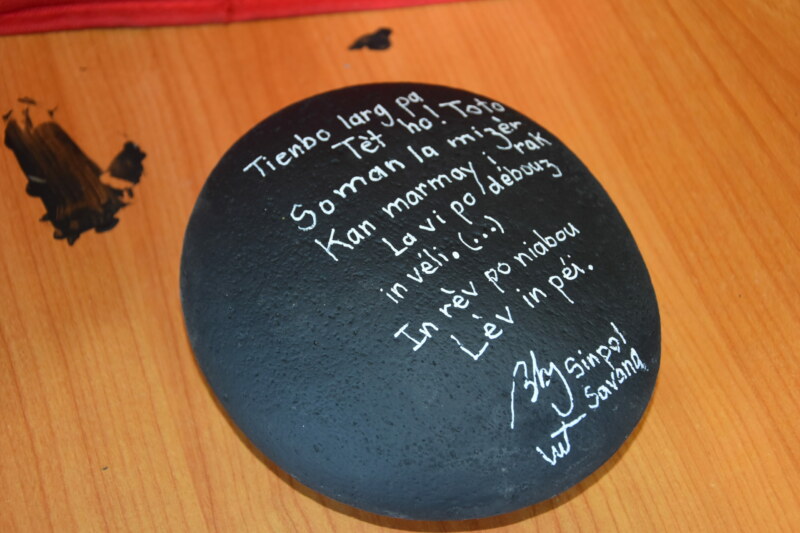 Tienbo larg pa
Tèt ho! Toto
Soman la mizèr
Kan marmay i rak
La vi po débouz
in véli. (...)
In rèv po niabou
Lèv in péi.
Sinpol
Savana